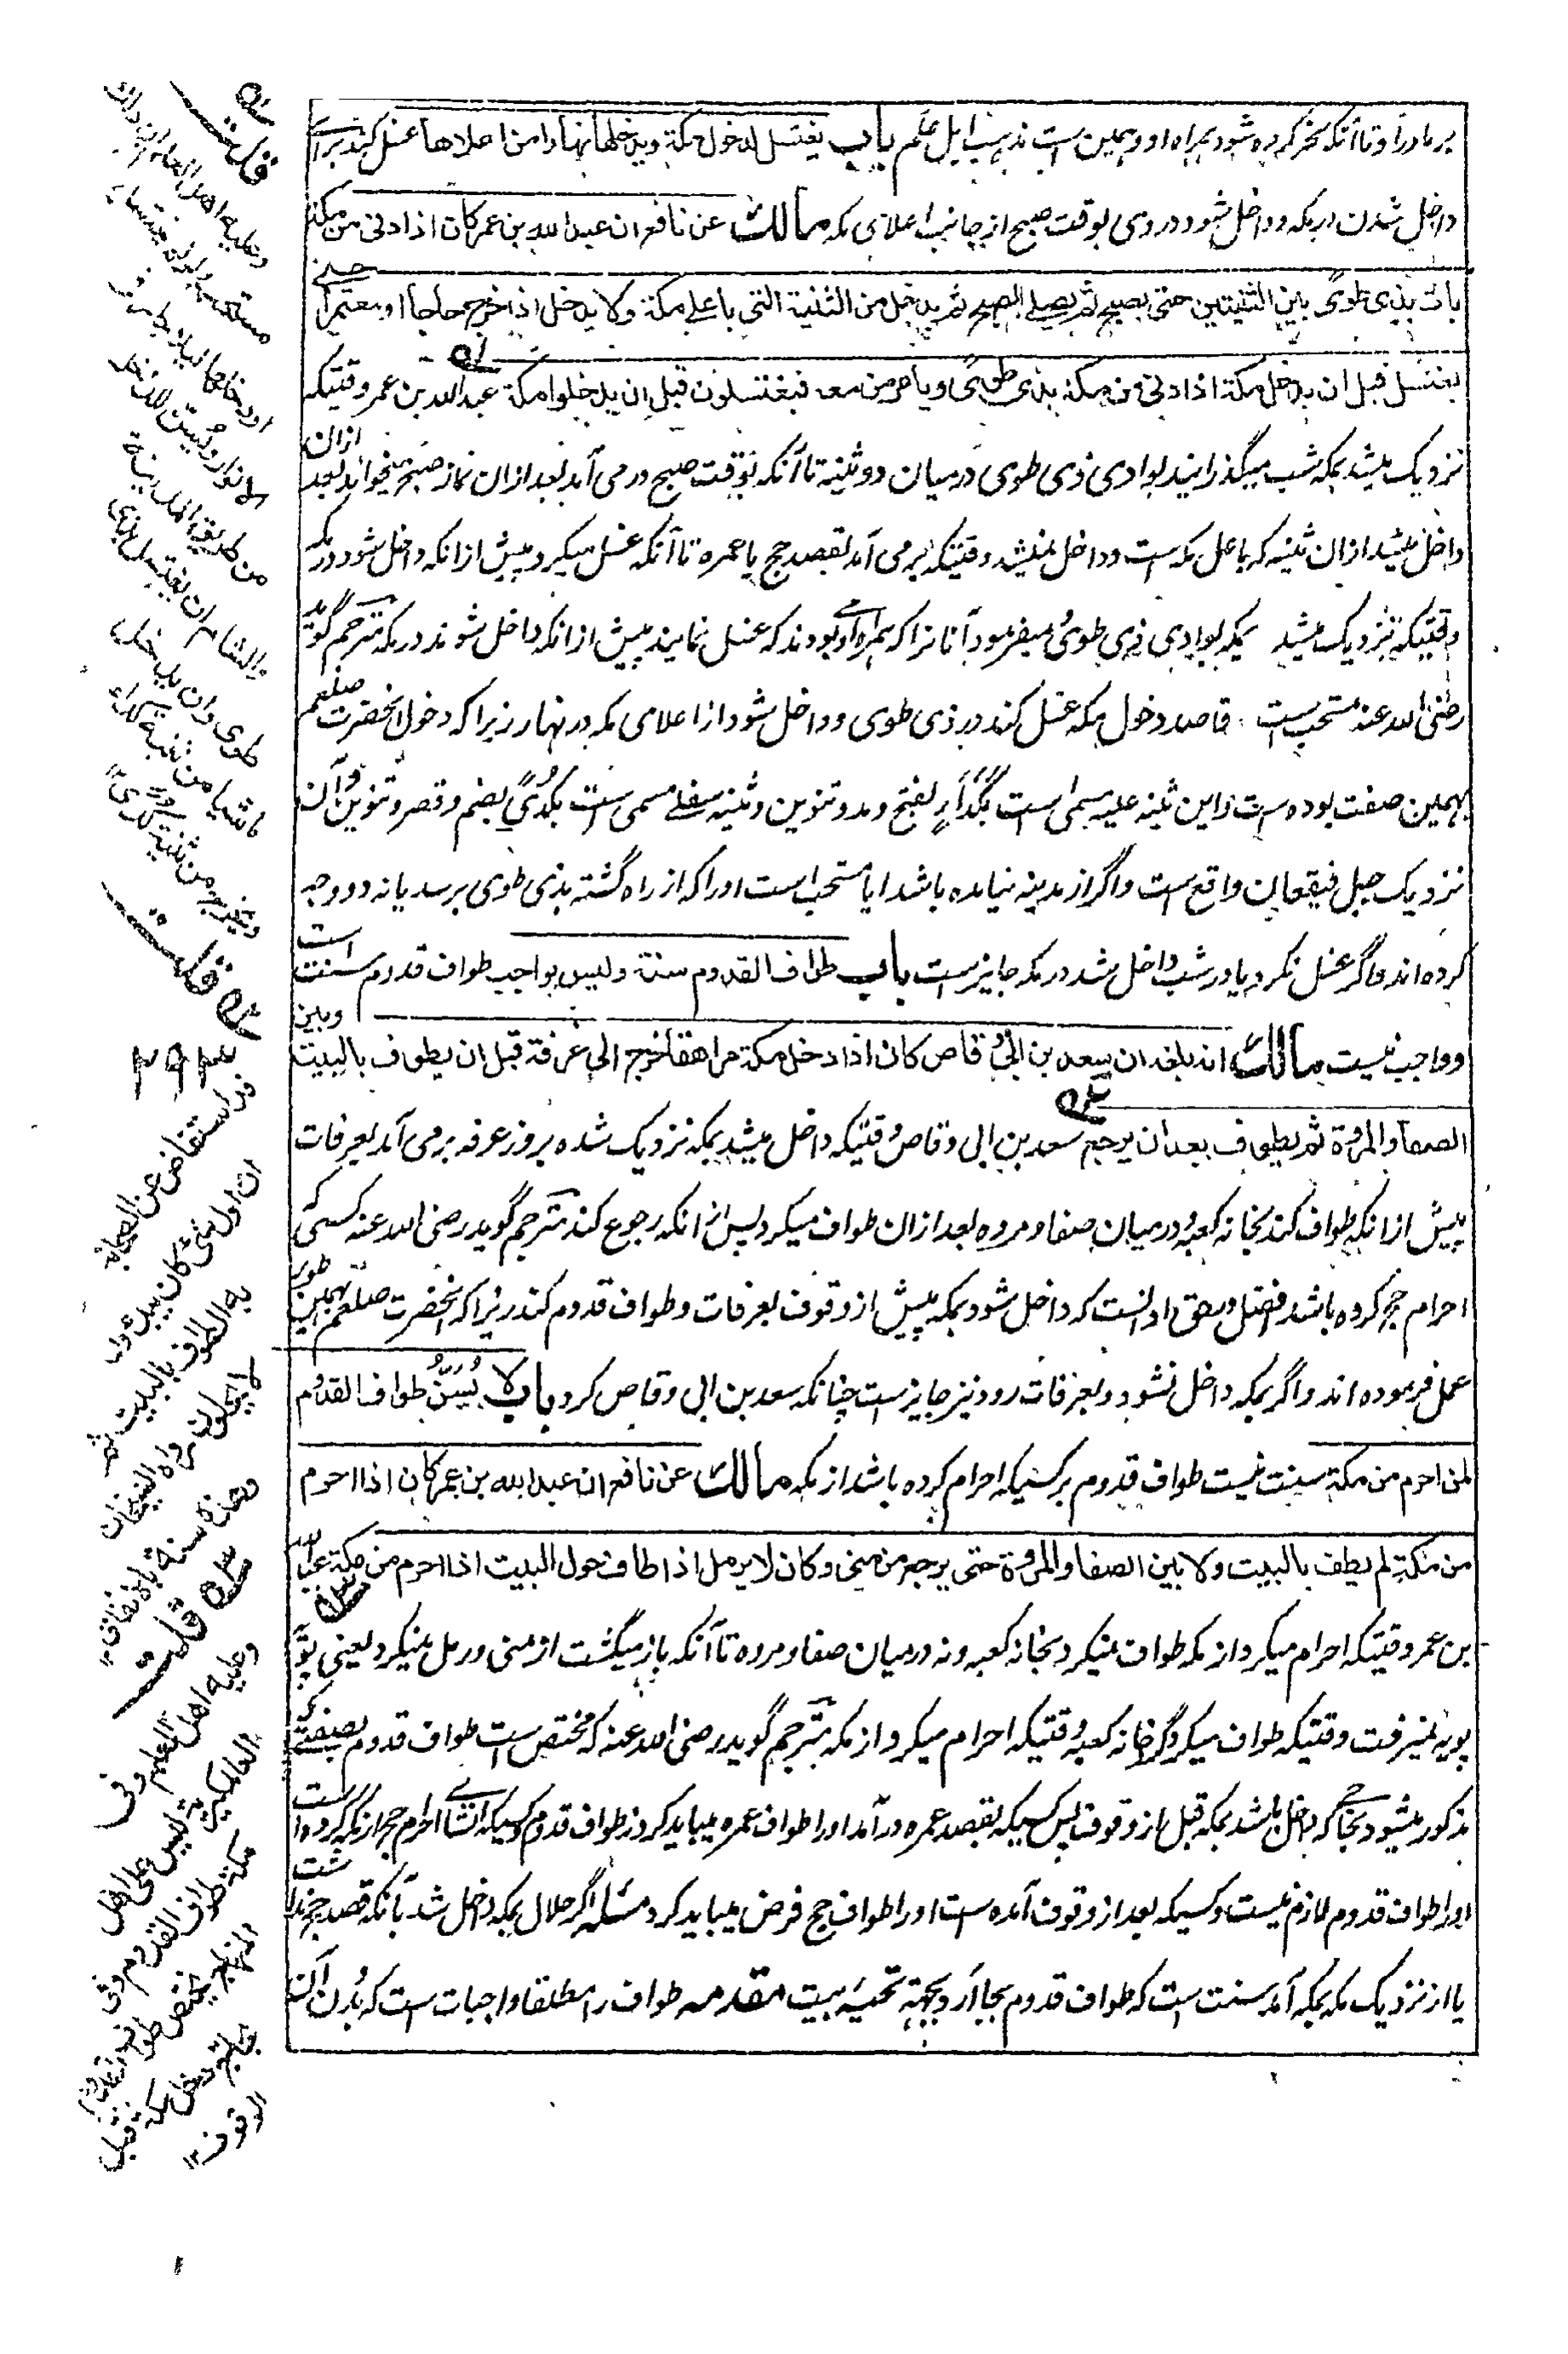 بر مادر او تا آنکه نحر کرده شود همراه او و همین است مذهب اهل علم باب یغتسل لدخول مکة ویدخلها نهارا من اعلاها غسل کند برای
داخل شدن در مکه و داخل شود در وی بوقت صبح از جانب اعلای مکه مالك عن نافع ان عبد الله بن عمر کان اذا دنی من مکة
بات بذی طوی بین الثنیتین حتی یصبح ثم یصلی الصبح ثم یدخل من الثنیة التی باعلی مکة ولا یدخل اذا خرج حاجا او معتمرا حتی
یغتسل قبل ان یدخل مکة اذا دنی من مکة بذی طوی ویامر من معه فیغتسلون قبل ان یدخلوا مکة عبد الله بن عمر وقتیکه
نزدیک میشد بمکه شب میگذرانید بوادی ذی طوی در میان دو ثنیه تا آنکه بوقت صبح در می آمد بعد ازان نماز صبح میخواند بعد ازان
داخل میشد ازان ثنیه که باعلی مکه است و داخل نمیشد وقتیکه بر می آمد بقصد حج یا عمره تا آنکه غسل میکرد پیش ازانکه داخل شود در مکه
وقتیکه نزدیک میشد بمکه بوادی ذی طوی و میفرمود آنانرا که همراه او بودند که غسل نمایند پیش ازانکه داخل شوند در مکه مترجم گوید
رضی الله عنه مستحب است قاصد دخول مکه غسل کند در ذی طوی و داخل شود از اعلای مکه در نهار زیرا که دخول آنحضرت صلعم
بهمین صفت بوده است و این ثنیه علیا مسمی است بکداء بفتح و مد و تنوین و ثنیه سفلی مسمی است بکدی بضم و قصر و تنوین و آن
نزدیک جبل قیقعان واقع است و اگر از مدینه نیامده باشد ایا مستحب است اورا که از راه گشته بذی طوی برسد یا نه دو وجه
کرده اند و اگر غسل نکرد یا در شب داخل شد در مکه جایز است باب طواف القدوم سنة ولیس بواجب طواف قدوم سنت است
و واجب نیست مالك انه بلغه ان سعد بن ابی وقاص کان اذا دخل مکة مراهقا خرج الی عرفة قبل ان یطوف بالبیت وبین
الصفا والمروة ثم یطوف بعد ان یرجع سعد بن ابی وقاص وقتیکه داخل میشد بمکه نزدیک شده بروز عرفه بر می آمد بعرفات
پیش ازانکه طواف کند بخانه کعبه و در میان صفا و مروه بعد ازان طواف میکرد پس ازانکه رجوع کند مترجم گوید رضی الله عنه کسی که
احرام حج کرده باشد افضل در حق او آنست که داخل شود بمکه پیش از وقوف بعرفات و طواف قدوم کند زیرا که آنحضرت صلعم بهمین طور
عمل فرموده اند و اگر بمکه داخل نشود و بعرفات رود نیز جایز است چنانکه سعد بن ابی وقاص کرد باب لا یسن طواف القدوم
لمن احرم من مکة سنت نیست طواف قدوم بر کسیکه احرام کرده باشد از مکه مالك عن نافع ان عبد الله بن عمر کان اذا احرم
من مکة لم یطف بالبیت ولا بین الصفا والمروة حتی یرجع من منی وکان لا یرمل اذا طاف حول البیت اذا احرم من مکة عبد الله
بن عمر وقتیکه احرام میکرد از مکه طواف نمیکرد بخانه کعبه و نه در میان صفا و مروه تا آنکه باز میگشت از منی و رمل نمیکرد یعنی پویه
پویه نمیرفت وقتیکه طواف میکرد گرد خانه کعبه وقتیکه احرام میکرد از مکه مترجم گوید رضی الله عنه که مختص است طواف قدوم بصفتیکه
مذکور میشود بحاجی که داخل باشد بمکه قبل از وقوف پس کسیکه بقصد عمره درآمد اورا طواف عمره میباید کرد نه طواف قدوم و کسیکه انشای احرام حج از مکه کرده است
اورا طواف قدوم لازم نیست و کسیکه بعد از وقوف آمده است اورا طواف حج فرض میباید کرد مسئله اگر حلال بمکه داخل شد بآنکه قصد حج نداشت
یا از نزدیک مکه بمکه آمد سنت است که طواف قدوم بجا آرد بجهة تحیة بیت مقدمه طواف را مطلقا واجبات است که بدون آن
قلت
وعلیه اهل العلم
قلت
۲۹۳
قد استفاض عن الصحابة
ان اول شئ کان یبدؤن
به الطواف بالبیت ثم
لا یحلون رواه الشیخان
وهذه سنة بالاتفاق
قلت
وعلیه اهل العلم وفی
العالمکیریة لیس علی اهل
مکة طواف القدوم وفی
المنهاج یختص طواف القدوم
بحاج دخل مکة قبل
الوقوف ۱۲